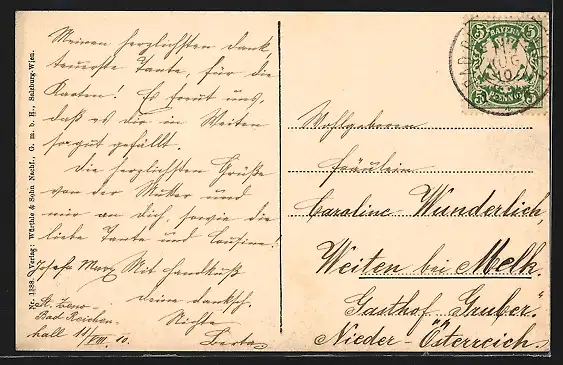 Meinen herzlichsten Dank
teuerste Tante, für die
Karten! Es freut uns,
daß es dir in Weiten
so gut gefällt.
Die herzlichsten Grüße
von der Mutter und
mir an Dich, sowie die
liebe Tante und Cousine!
Mit Handkuß
Deine dankb.
Nichte
Berta
Josefa Marx
St. Zeno-
Bad Reichen-
hall 11/VIII. 10.
Nr. 1388. Verlag: Würthle & Sohn Nachf., G. m. b. H., Salzburg-Wien.
BAYERN
5 5
5 5
PFENNIG
AUG
10
Wohlgeboren
Fräulein
Caroline Wunderlich,
Weiten bei Melk.
Gasthof „Gruber“
Nieder-Österreich.